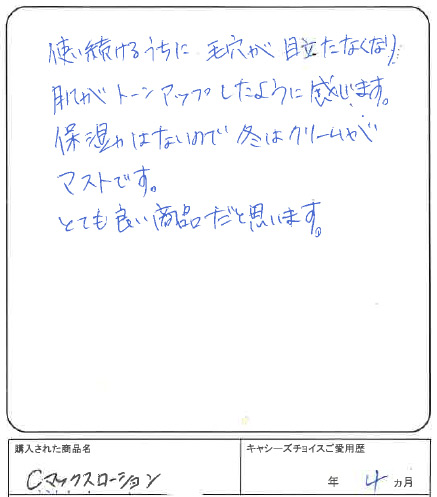 使い続けるうちに 毛穴が 目立たなくなり
肌がトーンアップしたように感じます。
保湿力はないので 冬はクリームが
マストです。
とても良い商品だと思います。
購入された商品名
Cマックスローション
キャシーズチョイスご愛用歴
年 4 ヵ月